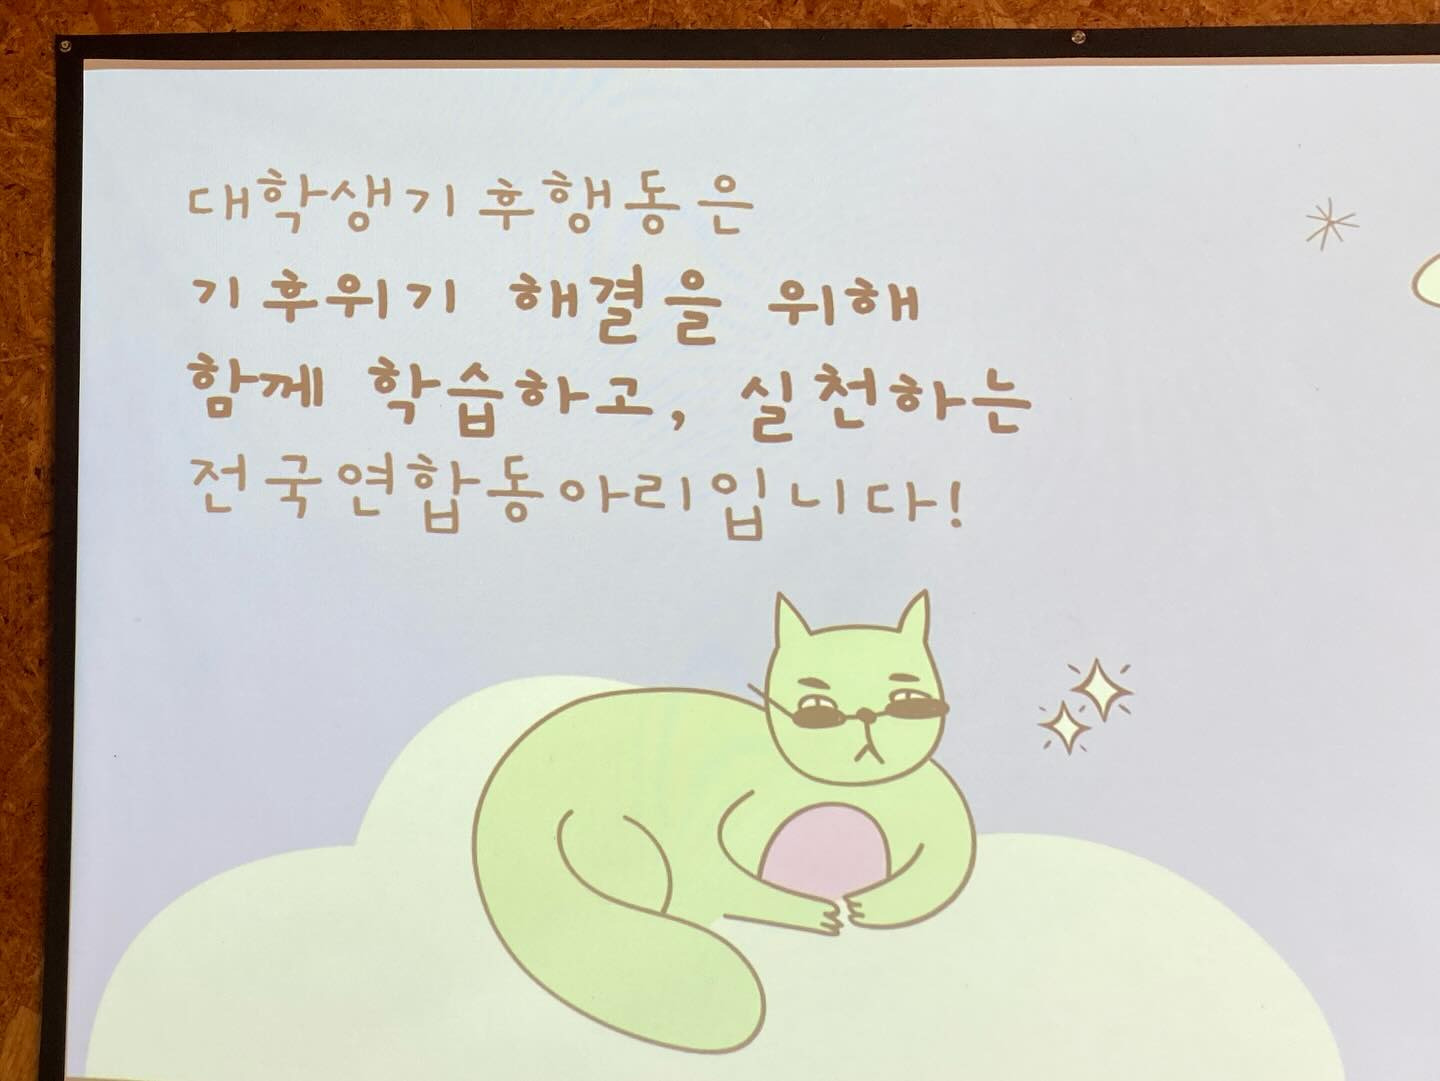 대학생기후행동은
기후위기 해결을 위해
함께 학습하고, 실천하는
전국연합동아리입니다!